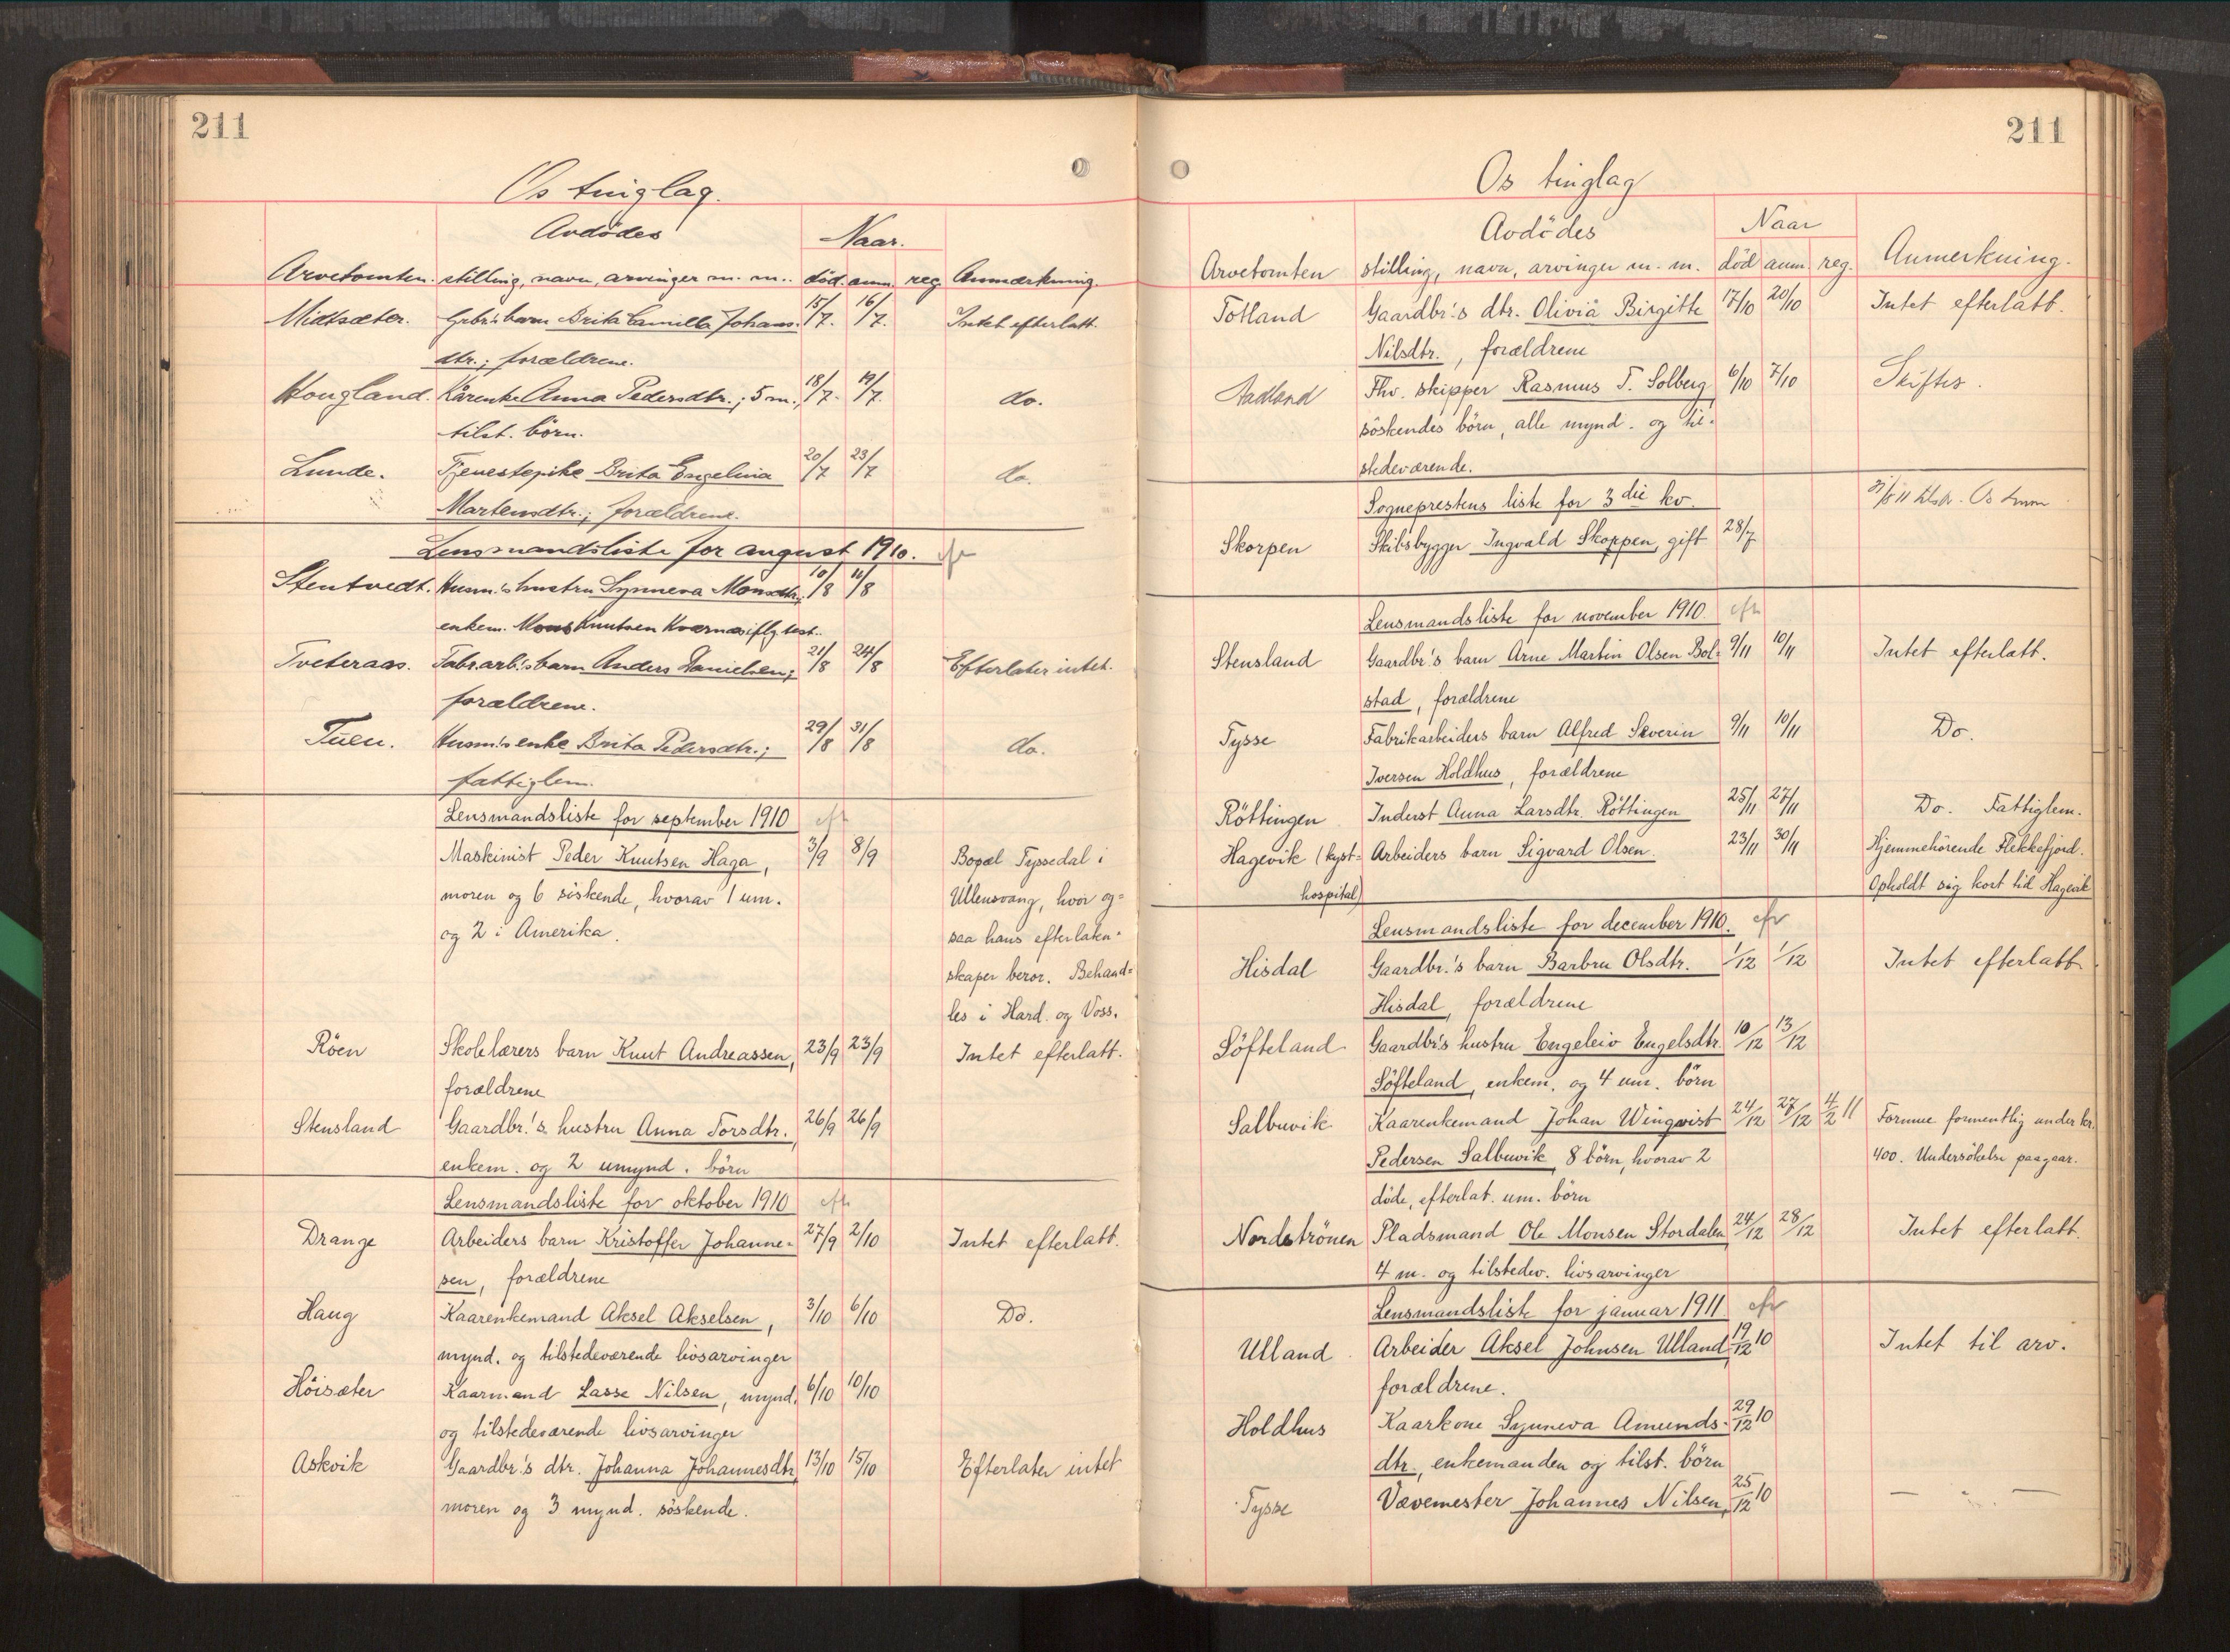 211
Os tinglag.
Avdödes
Naar.
Arvetomten. stilling, navn, arvinger m. m. död. anm. reg. Anmærkning.
Midtsæter. Grbr's barn Brita Camilla Johans- 15/7. 16/7. Intet efterlatt.
dtr.; forældrene.
Hougland. Kårenke Anna Pedersdtr.; 5 m., 18/7. 19/7. do.
tilst. börn.
Lunde. Tjenestepike Brita Engelina 20/7 23/7 do.
Martensdtr.; forældrene.
Lensmandsliste for august 1910. efr
Stentvedt. Husm.'s hustru Synneva Monsdtr.; 10/8 11/8
enkem. Mons Knutsen Kvernes iflg. test..
Tveteraas. Fabr.arb.'s barn Anders Danielsen; 21/8 24/8 Efterlater intet.
forældrene.
Tuen. Husm's enke Brita Pedersdtr.; 29/8 31/8 do.
fattiglem.
Lensmandsliste for september 1910 efr
Maskinist Peder Knutsen Haga, 3/9 8/9 Bopæl Tyssedal i
moren og 6 siskende, hvorav 1 um. Ullensvang, hvor og=
og 2 i Amerika. saa hans efterlaten=
skaper beror. Behand=
les i Hard. og Voss.
Röen Skolelærers barn Knut Andreassen, 23/9 23/9 Intet efterlatt.
forældrene
Stensland Gaardbr.'s hustru Anna Torsdtr. 26/9 26/9
enkem. og 2 umynd. börn
Lensmandsliste for oktober 1910 efr
Drange Arbeiders barn Kristoffer Johanne= 27/9 2/10 Intet efterlatt.
sen, forældrene
Haug Kaarenkemand Aksel Akselsen, 3/10 6/10 Do.
mynd. og tilstedeværende livsarvinger
Höisæter Kaarmand Lasse Nilsen, mynd. 6/10 10/10
og tilstedeværende livsarvinger
Askvik Gaardbr's dtr. Johanna Johannesdtr, 13/10 15/10 Efterlater intet
moren og 3 mynd. söskende.
211
Os tinglag
Avdödes
Naar
Arvetomten stilling, navn, arvinger m. m. död anm. reg. Anmerkning.
Totland Gaardbr.'s dtr. Olivia Birgitte 17/10 20/10 Intet efterlatt.
Nilsdtr., forældrene
Aadland Fhv. skipper Rasmus T. Solberg 6/10 7/10 Skiftes.
söskendes börn, alle mynd. og til=
stedeværende.
Sogneprestens liste for 3die kv.
Skorpen Skibsbygger Ingvald Skorpen, gift 28/7
Lensmandsliste for november 1910. efr
Stensland Gaardbr.'s barn Arne Martin Olsen Bol= 9/11 10/11 Intet efterlatt.
stad, forældrene
Tysse Fabrikarbeiders barn Alfred Severin 9/11 10/11 Do.
Iversen Holdhus, forældrene
Röttingen Inderst Anna Larsdtr. Röttingen 25/11 27/11 Do. Fattiglem.
Hagevik (kyst= Arbeiders barn Sigvard Olsen. 23/11 30/11 Hjemmehörende Flekkefjord.
hospital) Opholdt sig kort tid Hagevik
Lensmandsliste for december 1910. efr
Hisdal Gaardbr.'s barn Barbru Olsdtr. 1/12 1/12 Intet efterlatt
Hisdal, forældrene
Söfteland Gaardbr's hustru Engeleiv Engelsdtr. 10/12 13/12
Söfteland, enkem. og 4 um. börn
Salbuvik Kaarenkemand Johan Wingqvist 24/12 27/12 4/2 11 Formue formentlig under kr.
Pedersen Salbuvik, 8 börn, hvorav 2 400. Undersökelse paagaar.
döde, efterlat. um. börn
Nordströnen Pladsmand Ole Monsen Stordalen 24/12 28/12 Intet efterlatt.
4 m. og tilstedev. livsarvinger
Lensmandsliste for januar 1911 efr
Ulland. Arbeider Aksel Johnsen Ulland, 19/12 10 Intet til arv.
forældrene.
Holdhus Kaarkone Synneva Amunds- 29/12 10
dtr., enkemanden og tilst. börn
Tysse Vævemester Johannes Nilsen, 25/12 10 — " —